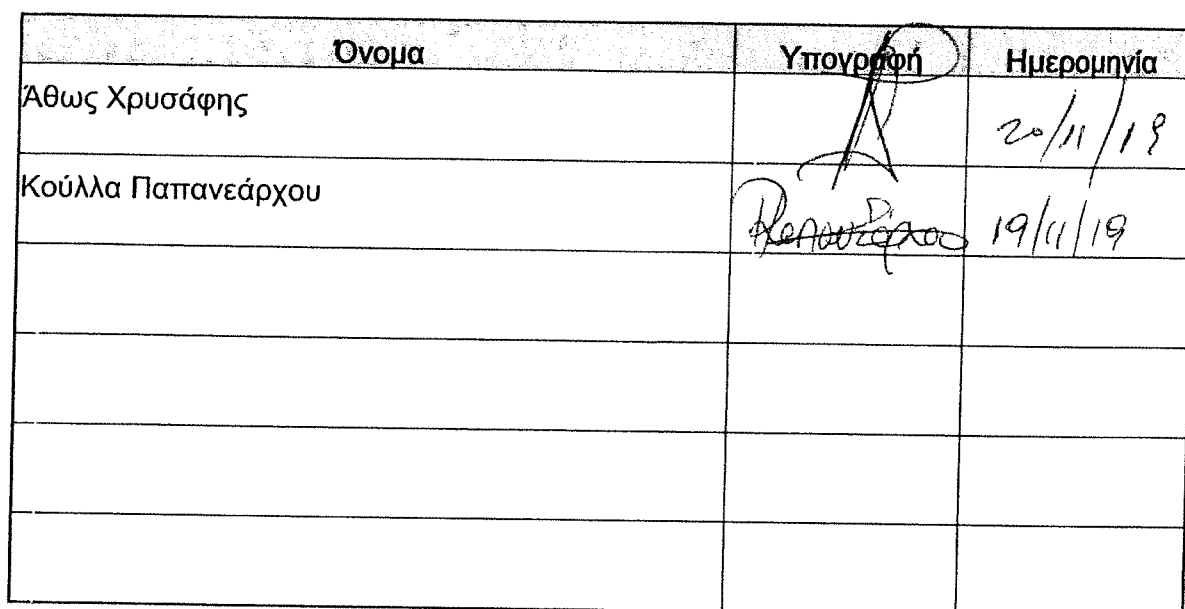 Όνομα Υπογραφή Ημερομηνία
Άθως Χρυσάφης 20/11/19
Κούλλα Παπανεάρχου 19/11/19